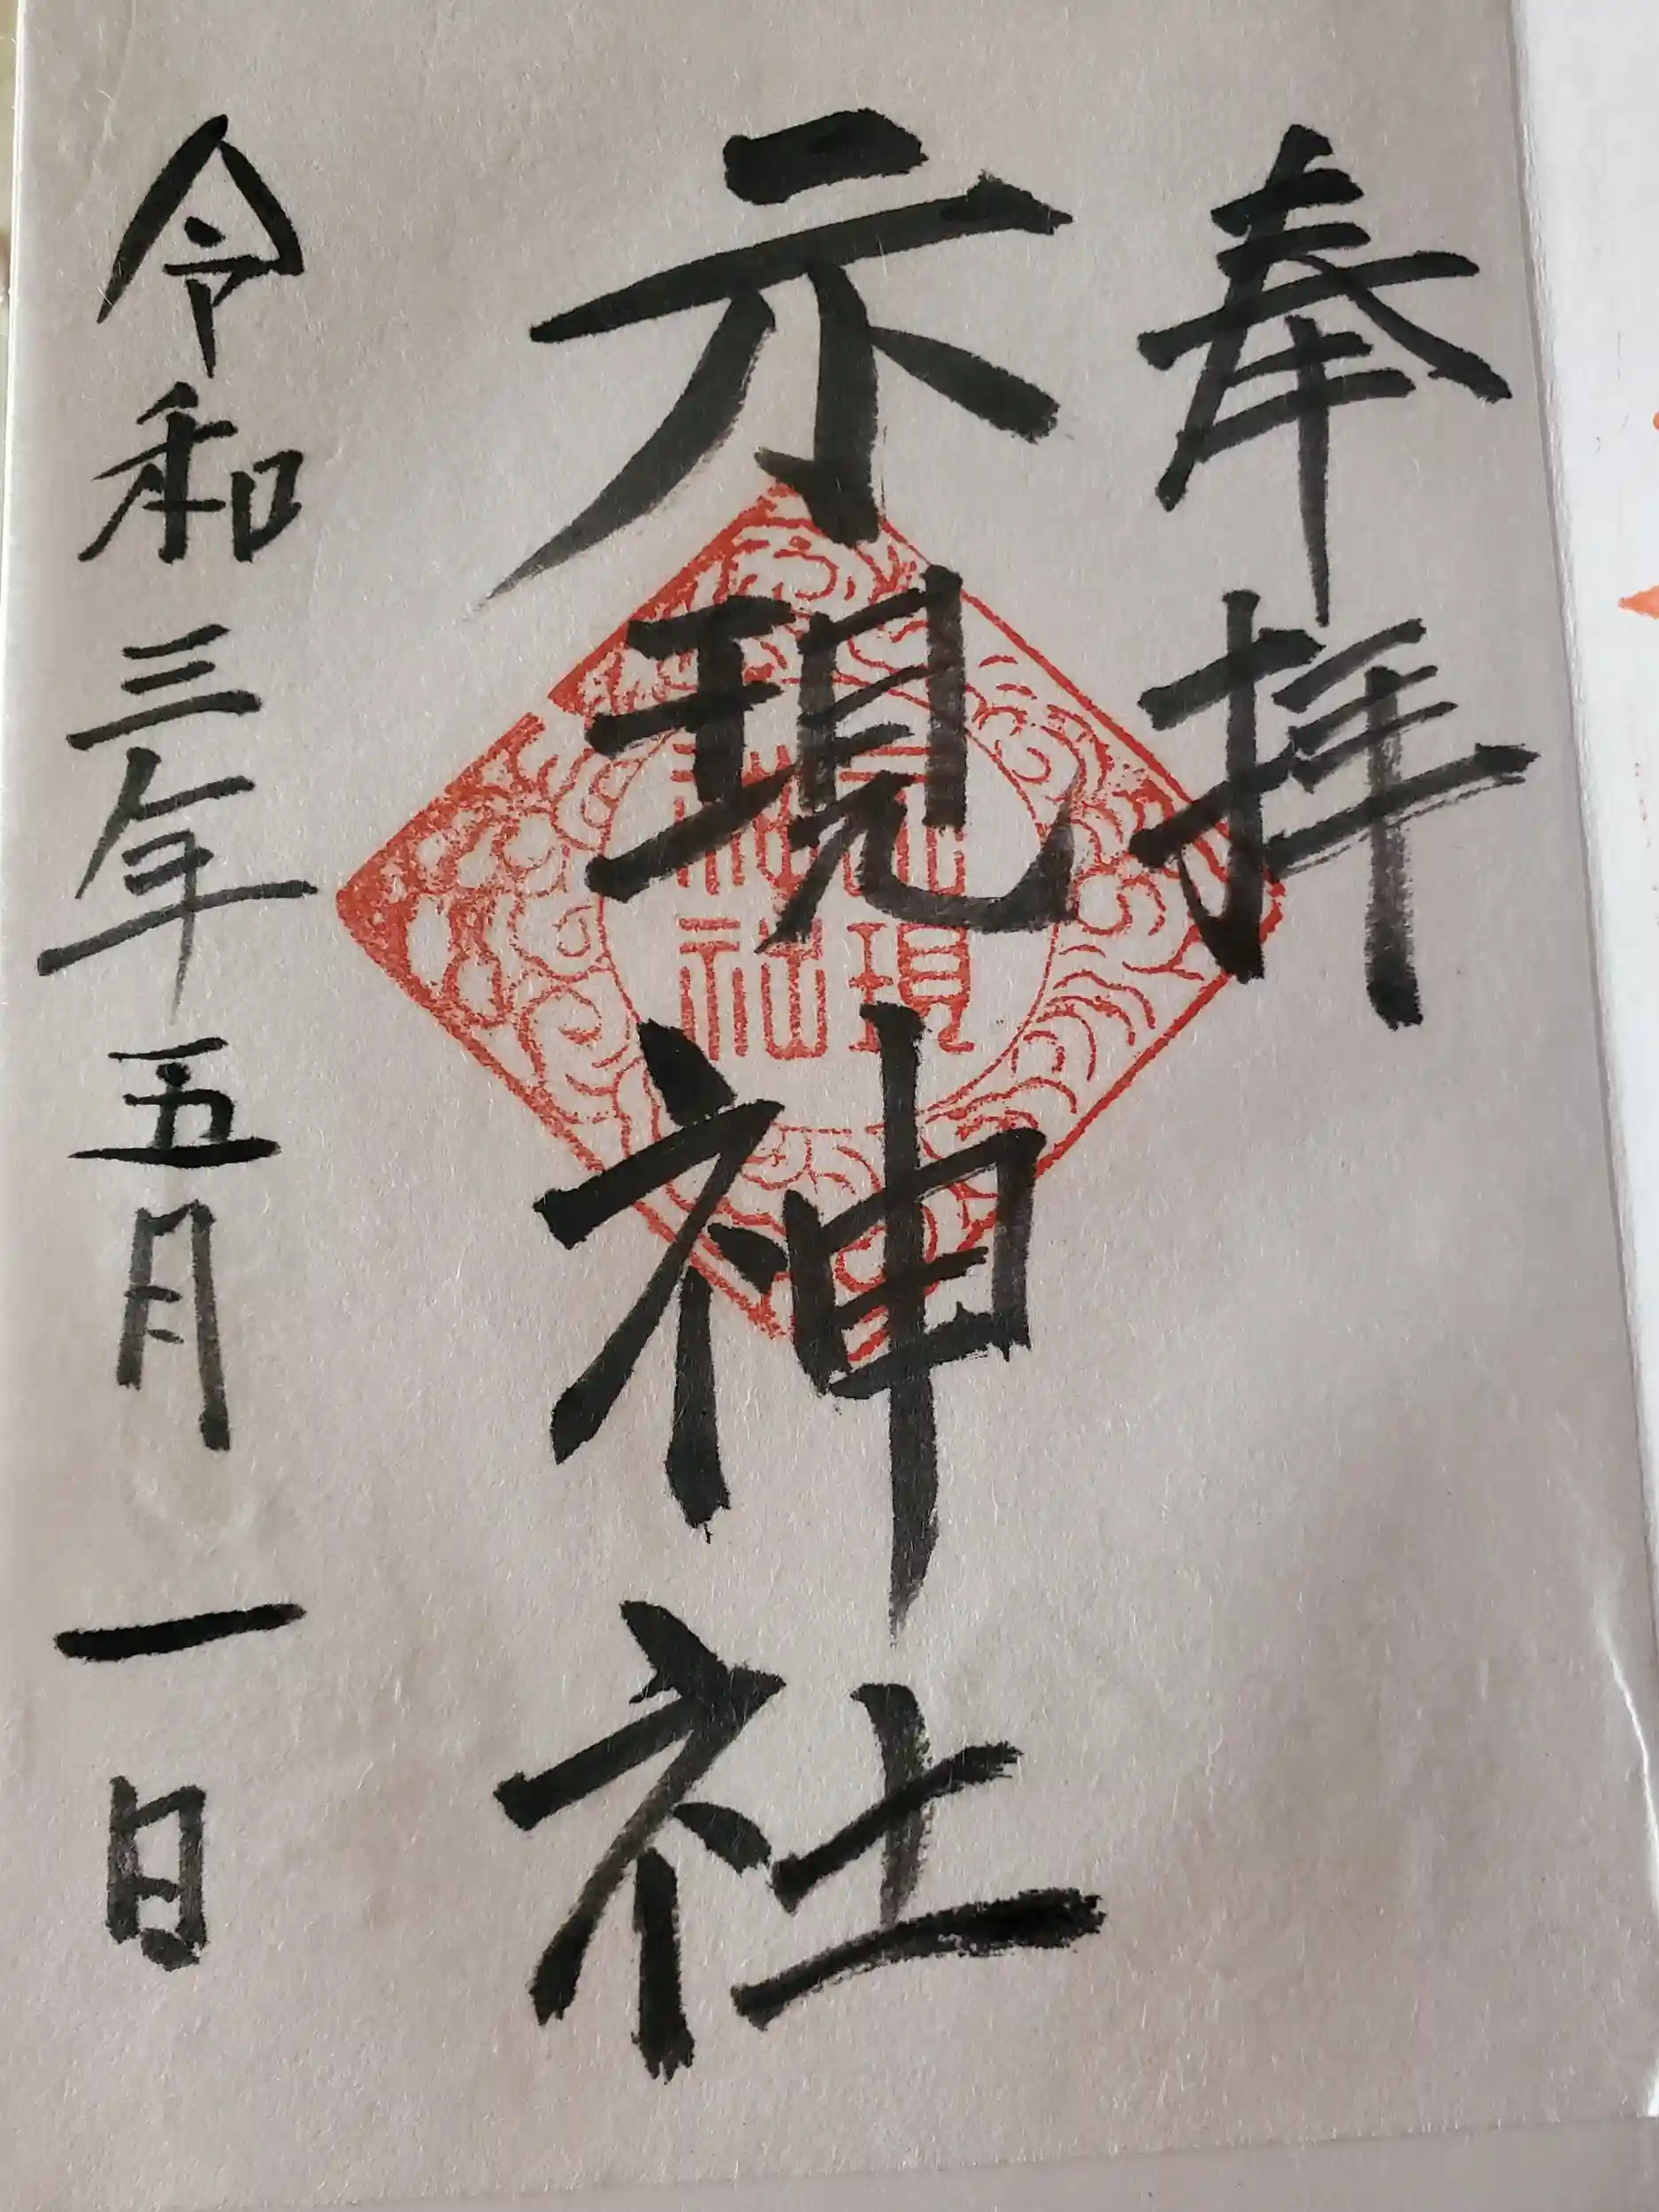 奉拝
示現神社
示現
神社
令和三年五月一日